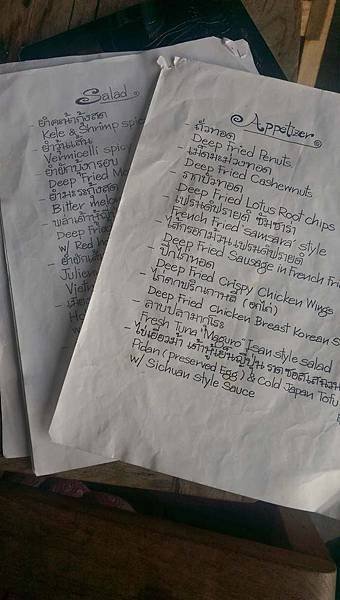 Salad
ยำคะน้ากุ้งสด
Kele & Shrimp spic
ยำวุ้นเส้น
Vermicelli spicy
ยำผักบุ้งกรอบ
Deep Fried Mo
ยำมะระกุ้งสด
Bitter melon
Deep Frie
w/ Red
Julien
Viet
Appetizer
- ถั่วทอด
Deep Fried Penuts
- เม็ดมะม่วงทอด
Deep Fried Cashewnuts
- รากบัวทอด
Deep Fried Lotus Root chips
- เฟรนช์ฟรายด์ ซัมซารา
French Fried "samsara" style
- ไส้กรอกม้วนเฟรนช์ฟรายด์
Deep Fried Sausage in French Fri
- ปีกไก่ทอด
Deep Fried Crispy Chicken Wings
- ไก่ทอดเกาหลี (อกไก่)
Deep Fried Chicken Breast Korean S
- ลาบปลามากุโระ
Fresh Tuna "Maguro" Isan style salad
- ไข่เยี่ยวม้า เต้าหู้เย็นญี่ปุ่น ราด ซอสเสฉวน
Pidan (preserved Egg) & Cold Japan Tofu
w/ Sichuan style Sauce